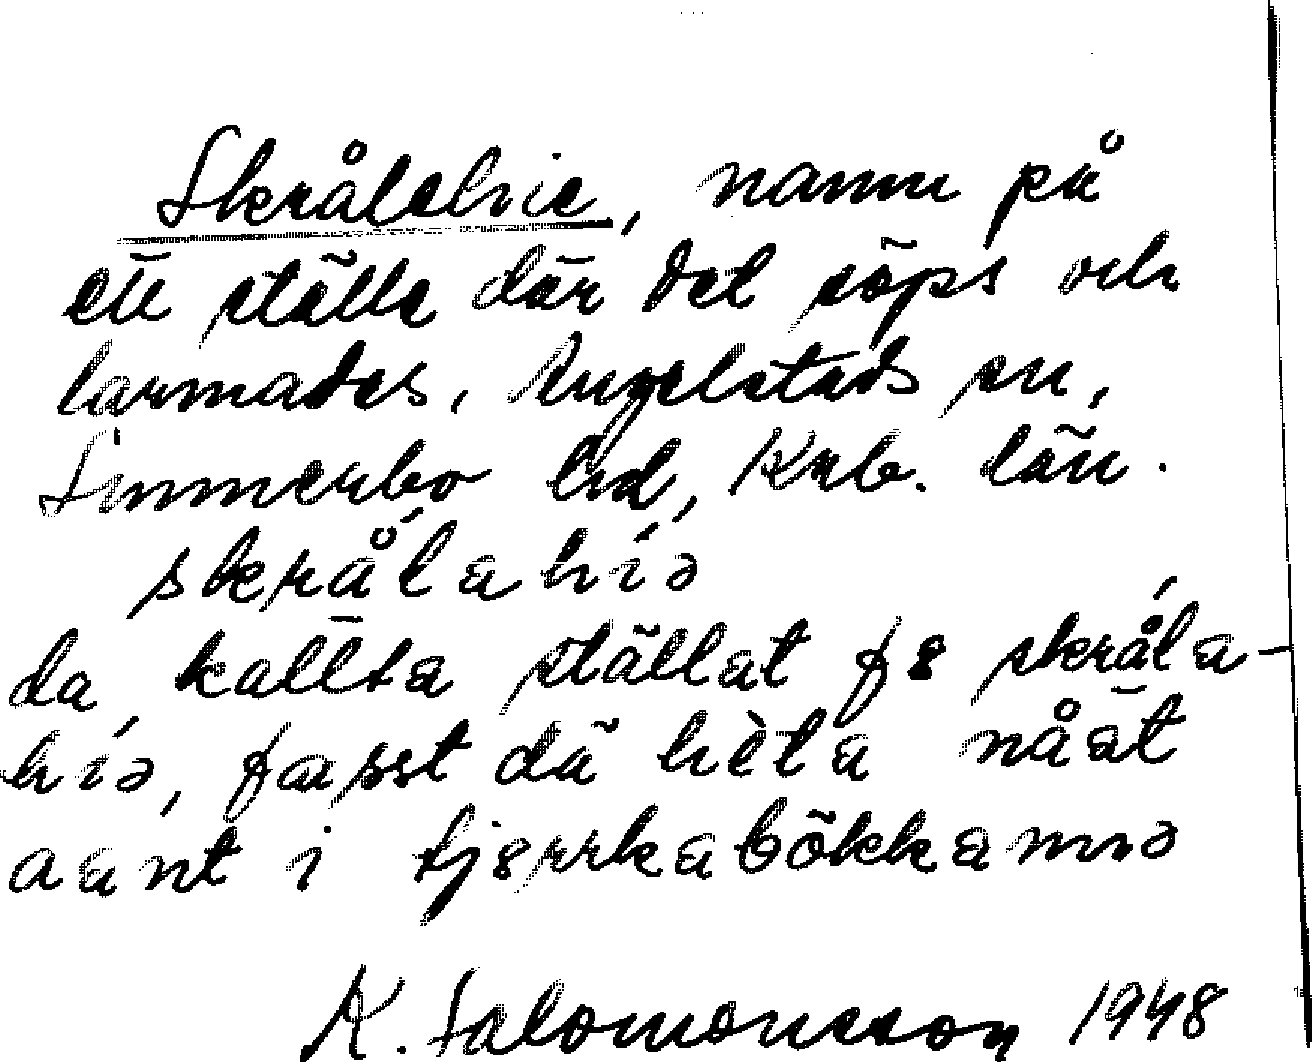 Skrålehie, namn på
ett ställe där det söps och
larmades. Angelstads sn,
Sunnerbo hd, Krb. län.
skrålahiə
da kallta ställat fɵ skråla-
hiə, fasst dä hèta nåat
aant i tjɵrrkabökkarnə
K. Salomonsson 1948